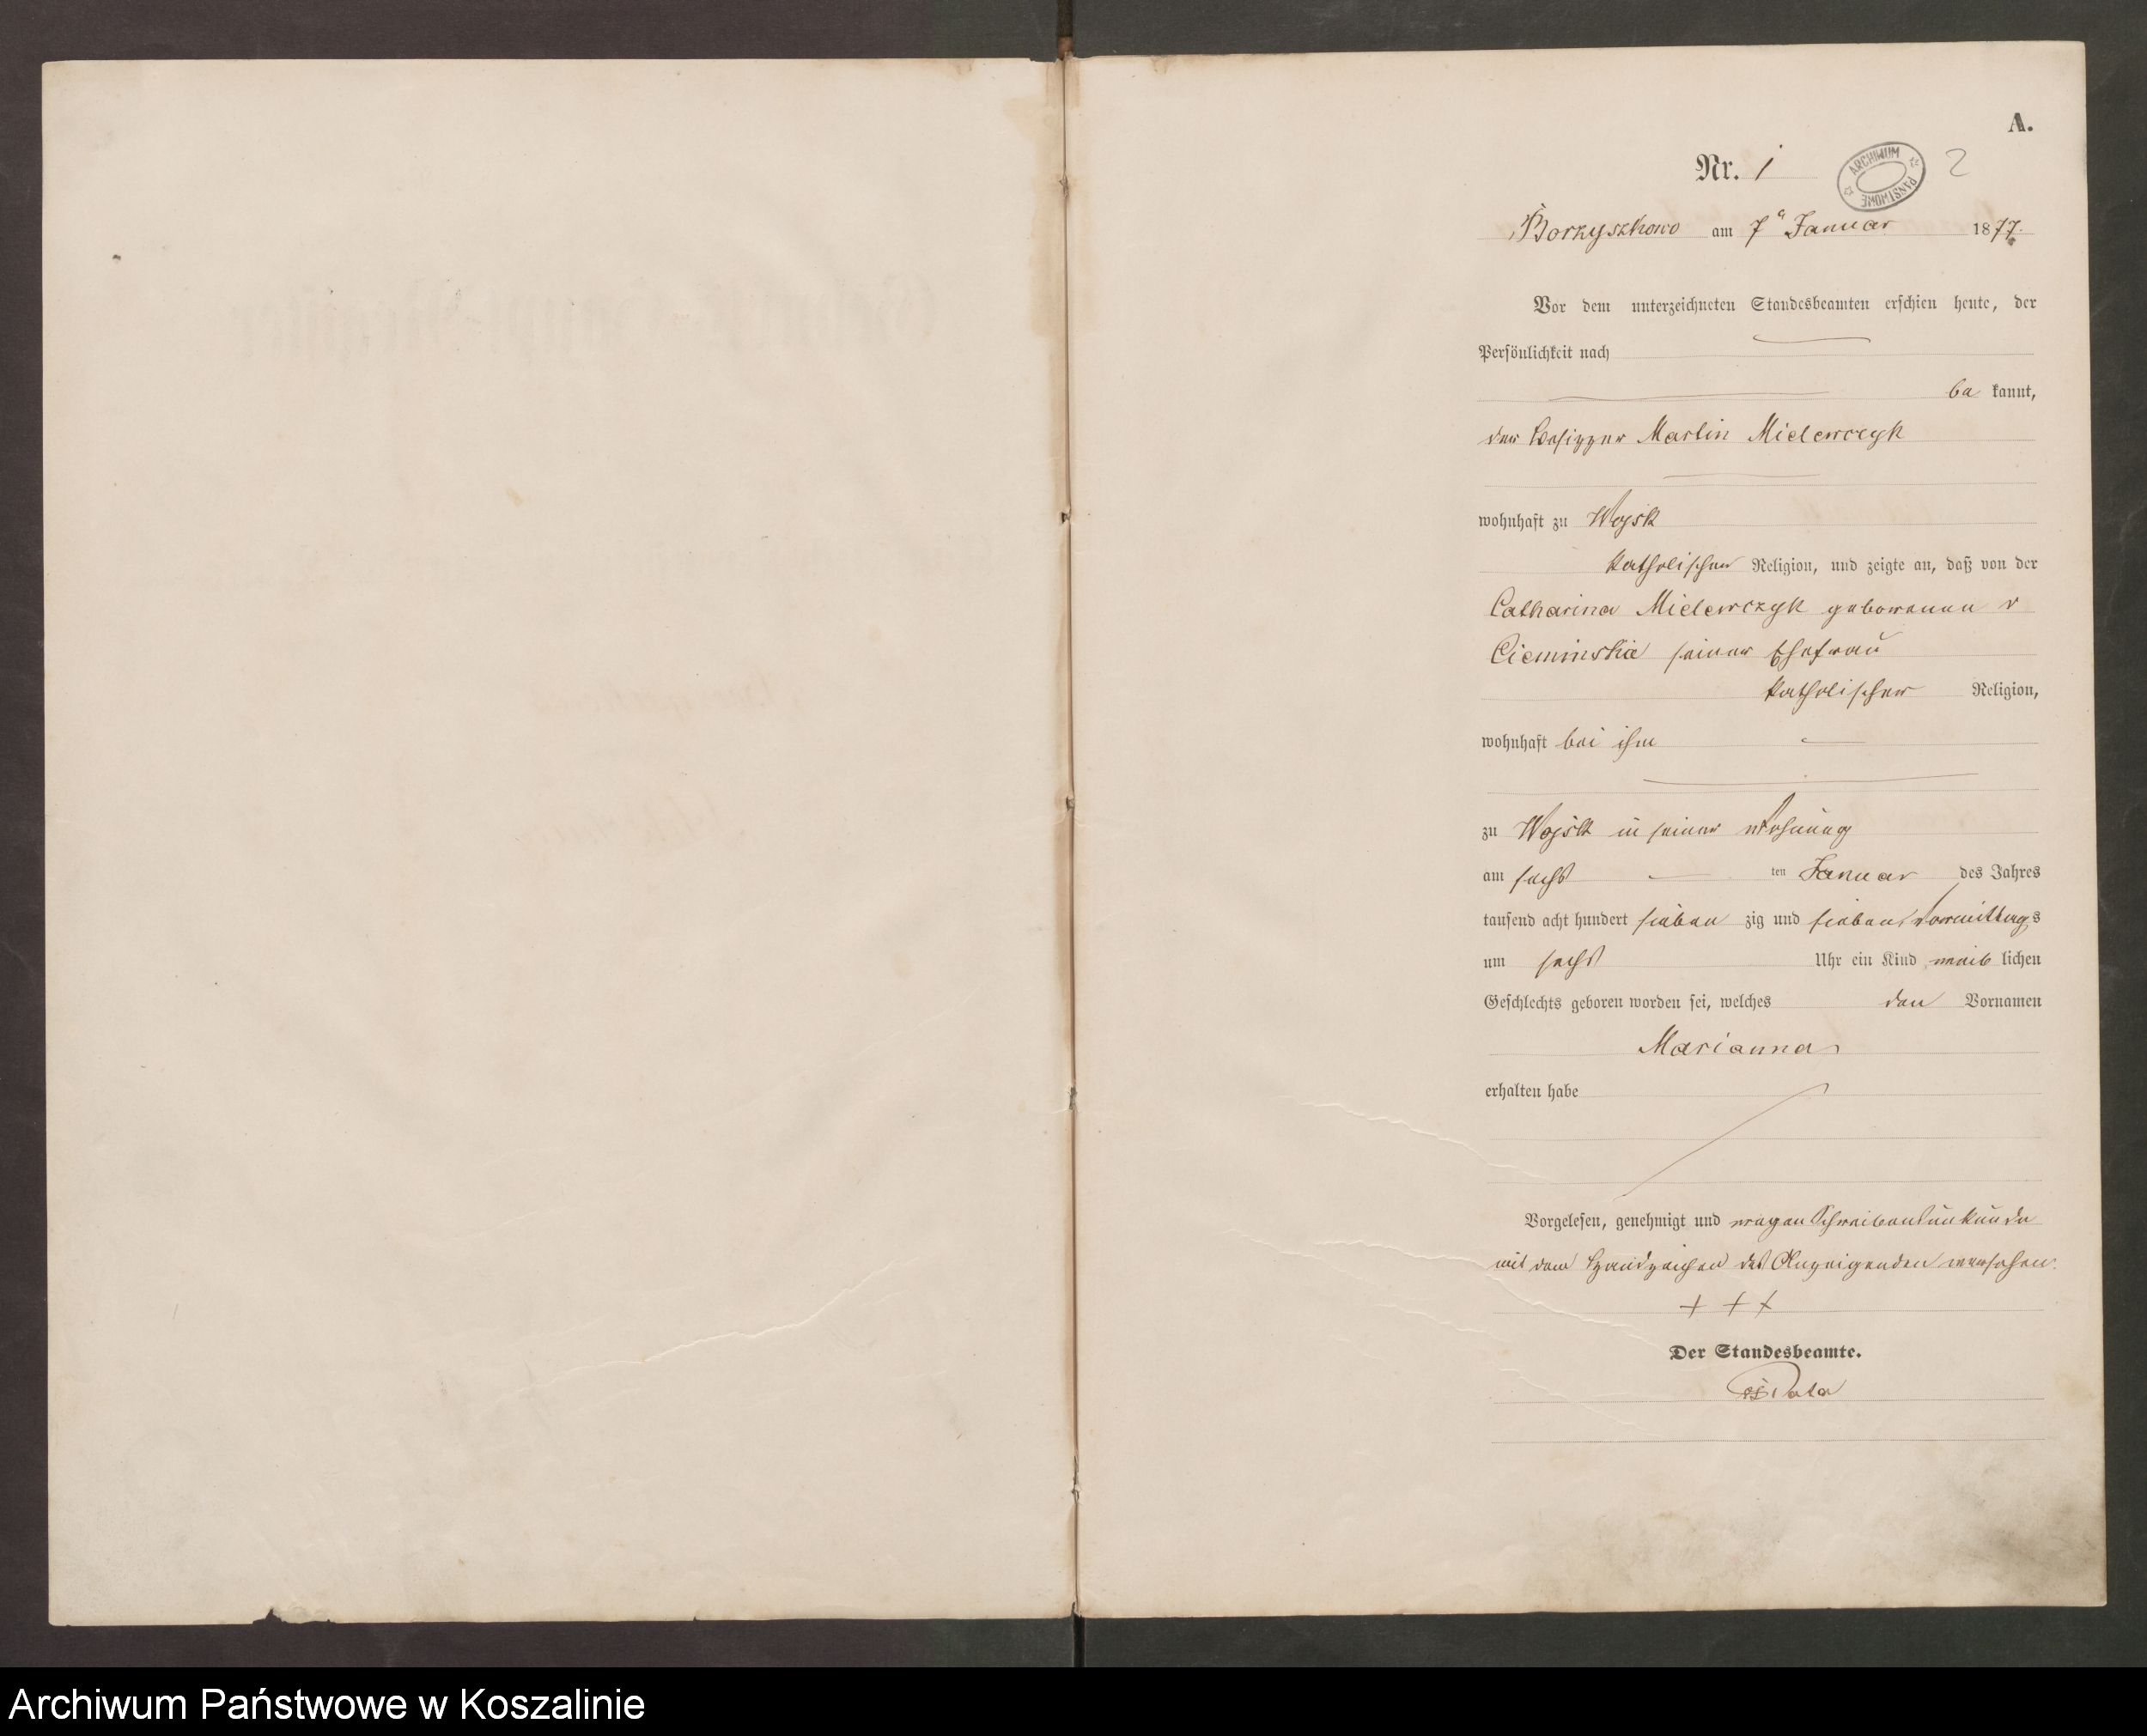 A.
Nr. 1
ARCHIWUM PAŃSTWOWE
2
Borzyszkowo am 7ª Januar 1877.
Vor dem unterzeichneten Standesbeamten erschien heute, der
Persönlichkeit nach
be kannt,
der Besitzer Martin Mielewczyk
wohnhaft zu Wojsk
katholischer Religion, und zeigte an, daß von der
Catharina Mielewczyk geborenen v
Cieminska seiner Ehefrau
katholischer Religion,
wohnhaft bei ihm
zu Wojsk in seiner Wohnung
am sechs ten Januar des Jahres
tausend acht hundert sieben zig und sieben, Vormittags
um sechs Uhr ein Kind weib lichen
Geschlechts geboren worden sei, welches den Vornamen
Marianna
erhalten habe
Vorgelesen, genehmigt und wegen Schreibensunkunde
mit dem Handzeichen des Anzeigenden versehen.
+ + +
Der Standesbeamte.
Archiwum Państwowe w Koszalinie